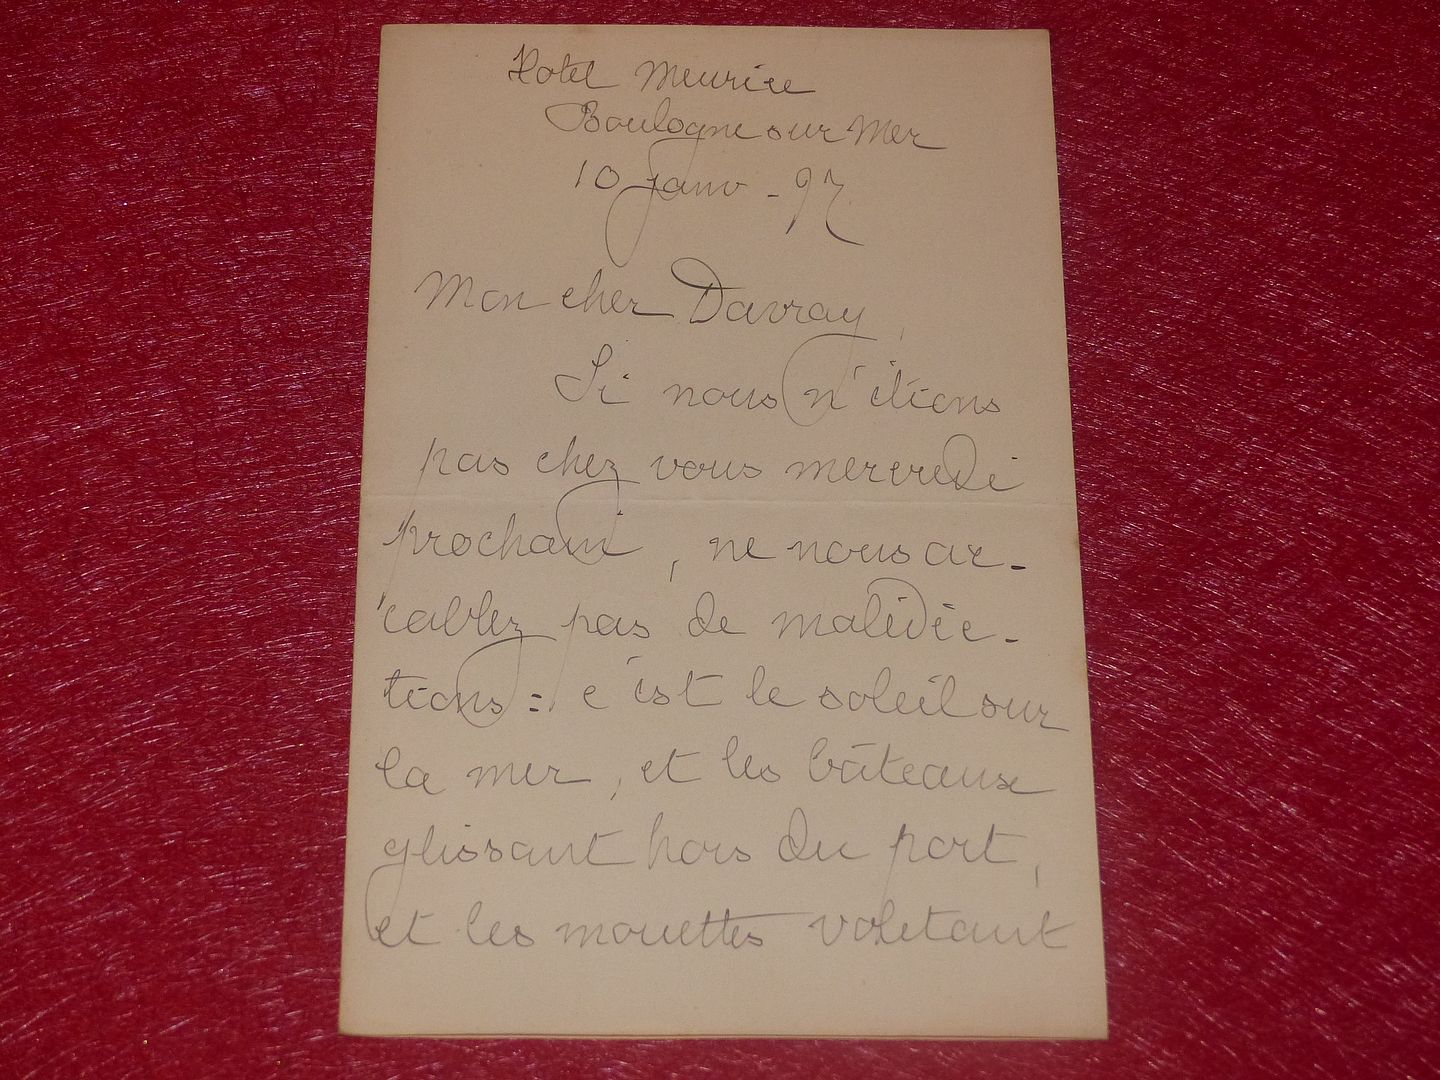 Hotel Meurice
Boulogne sur Mer
10 janv - 97
Mon cher Davray,
Si nous n'étions
pas chez vous mercredi
prochain, ne nous ac-
cablez pas de malédic-
tions : c'est le soleil sur
la mer, et les bâteaux
glissant hors du port,
et les mouettes voletant